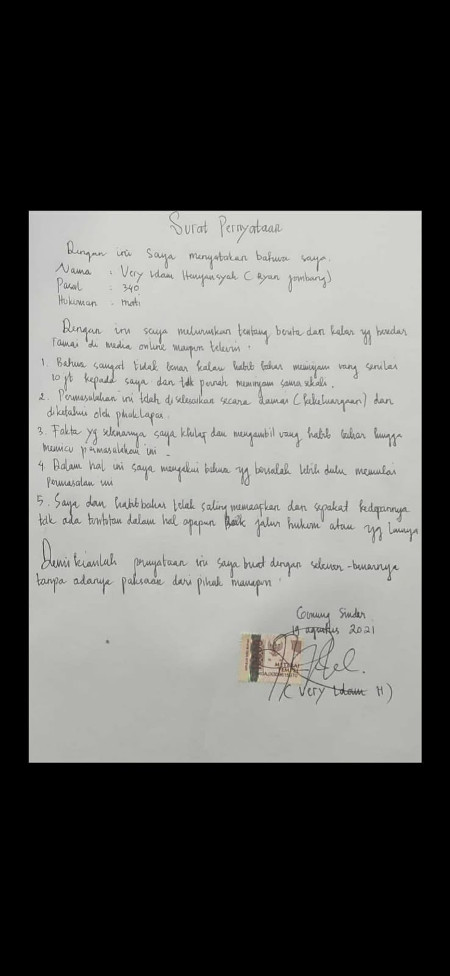 Surat Pernyataan
Dengan ini saya menyatakan bahwa saya.
Nama : Very Idam Henyansyah (Ryan Jombang)
Pasal : 340
Hukuman : mati
Dengan ini saya meluruskan tentang berita dan kabar yg beredar
ramai di media online maupun televisi.
1. Bahwa sangat tidak benar kalau habib bahar meminjam uang senilai
10 jt kepada saya dan tdk pernah meminjam sama sekali.
2. Permasalahan ini telah di selesaikan secara damai (kekeluargaan) dan
diketahui oleh pihak lapas.
3. Fakta yg sebenarnya saya khilaf dan mengambil uang habib bahar hingga
memicu permasalahan ini.
4. Dalam hal ini saya mengakui bahwa yg bersalah lebih dulu memulai
permasalan ini
5. Saya dan habib bahar telah saling memaafkan dan sepakat kedepannya
tdk ada tuntutan dalam hal apapun baik jalur hukum atau yg lainnya
Demikianlah pernyataan ini saya buat dengan sebenar-benarnya
tanpa adanya paksaan dari pihak manapun.
Gunung Sindur
19 agustus 2021
METERAI
TEMPEL
(Very Idam H)